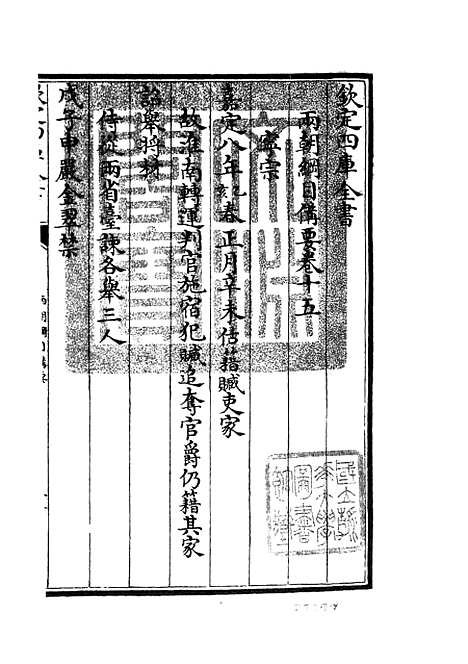 欽定四庫全書
兩朝綱目備要卷十五
寧宗
嘉定八年乙亥春正月辛未估籍贓吏家
故淮南轉運判官施宿犯贓追奪官爵仍籍其家
詔舉将材
侍從兩省臺諫各舉三人
戊子申嚴金翠禁
兩朝綱目備要